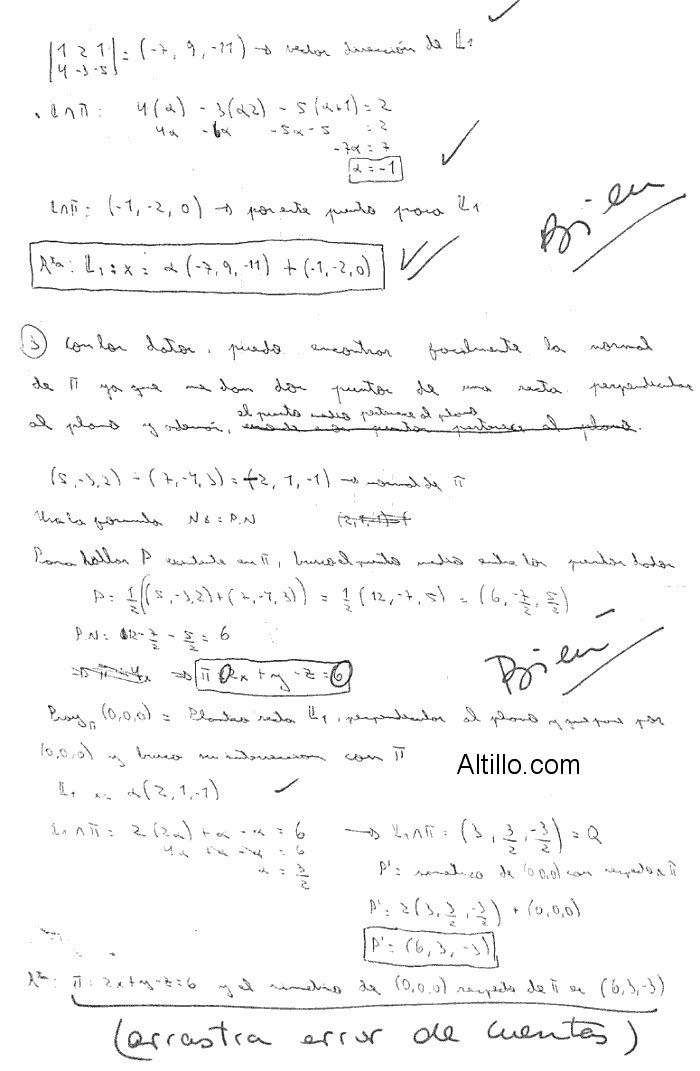 |1 2 1
4 -3 -5| = (-7, 9, -11) → vector dirección de L1
. L∩π: 4(α) - 3(α2) - 5(α+1) = 2
4α - 6α - 5α - 5 = 2
-7α = 7
α = -1
L∩π: (-1, -2, 0) → por este punto pasa L1
Bien
Rta: L1: x = α(-7, 9, -11) + (-1, -2, 0)
3) Con los datos, puedo encontrar facilmente la normal
de π ya que me dan dos puntos de una recta perpendicular
el punto medio pertenece al plano
al plano y además,
(5, -3, 2) - (7, -4, 3) = (-2, 1, -1) → normal de π
Usa la formula Nx = P.N
Para hallar P contenido en π, busco el punto medio entre los puntos dados
P = 1/2((5, -3, 2) + (7, -4, 3)) = 1/2(12, -7, 5) = (6, -7/2, 5/2)
P.N = 12 - 7/2 - 5/2 = 6
⇒ π 2x + y - z = 6
Bien
Proyπ (0,0,0) = Planteo recta L1, perpendicular al plano y que pasa por
(0,0,0) y busco su interseccion con π
Altillo.com
L1 x = α(2, 1, -1)
L1∩π = 2(2α) + α - -α = 6 → L1∩π = (3, 3/2, -3/2) = Q
4α = 6
α = 3/2
P' = simetrico de (0,0,0) con respecto a π
P' = 2(3, 3/2, -3/2) + (0,0,0)
P' = (6, 3, -3)
Rta: π: 2x + y - z = 6 y el simetrico de (0,0,0) respecto de π es (6, 3, -3)
(arrastra error de cuentas)